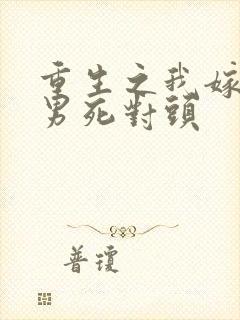 重生之我嫁
男死對頭
普瓊